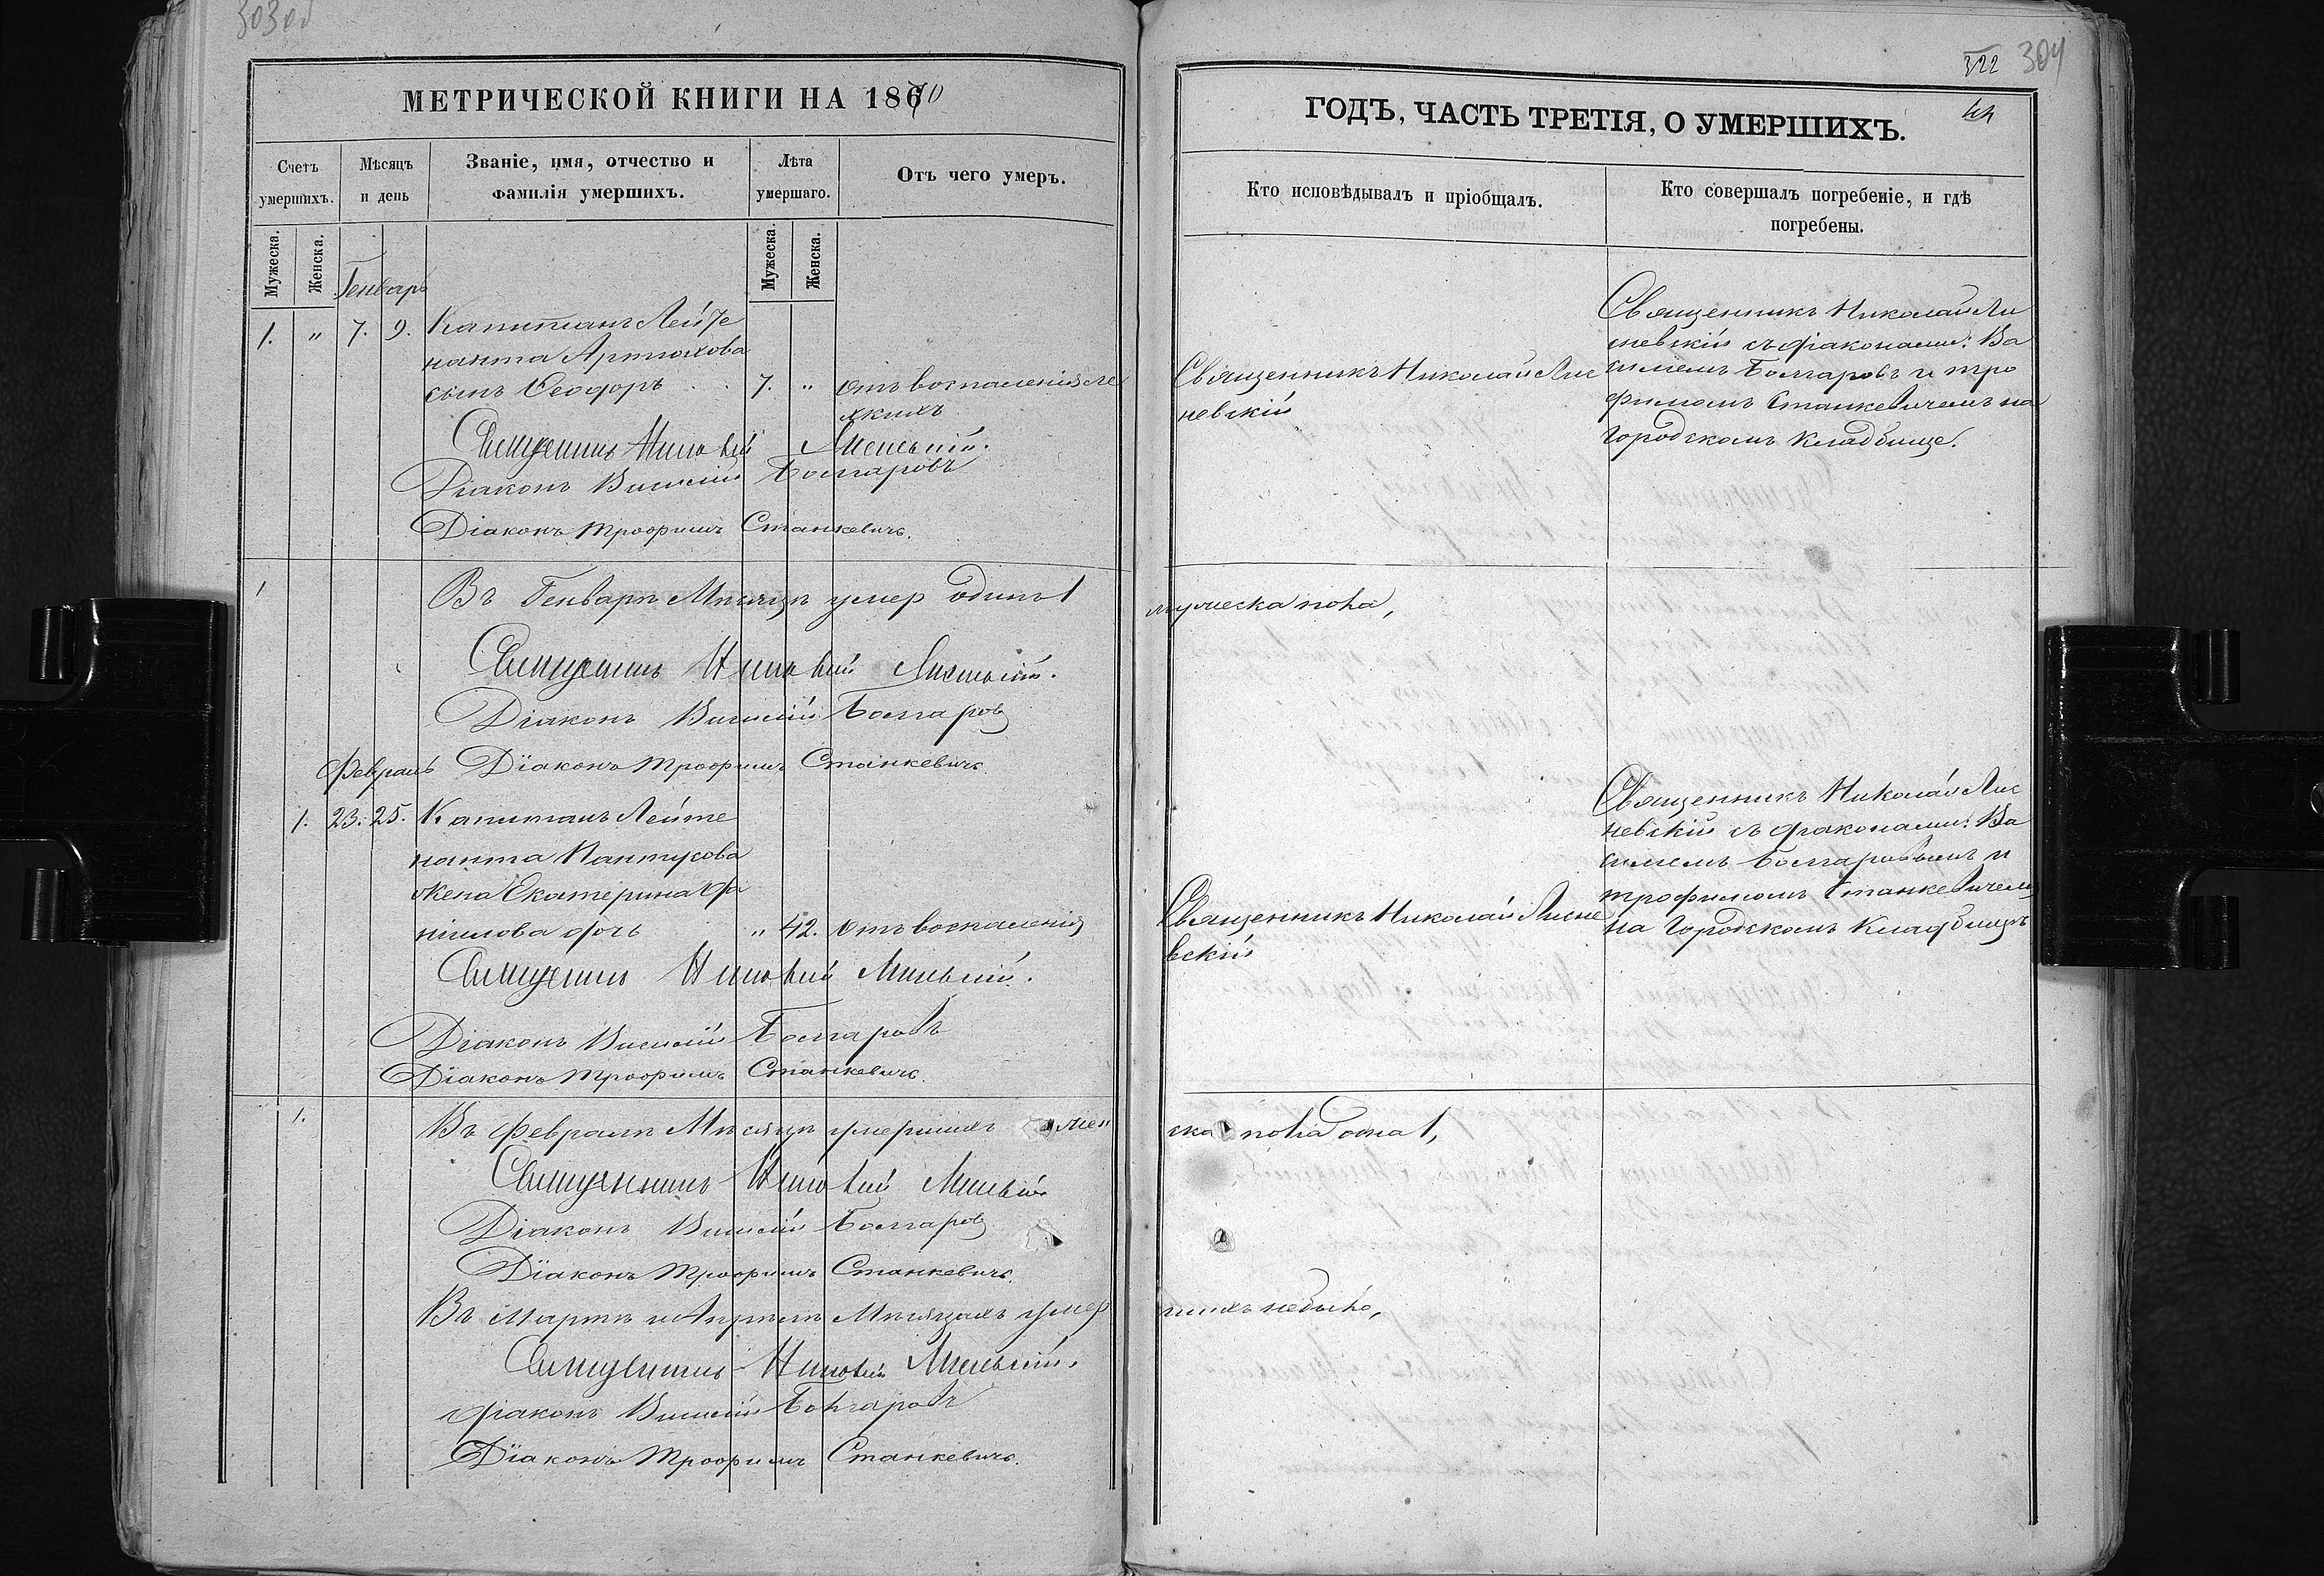 303 об
МЕТРИЧЕСКОЙ КНИГИ НА 1870
Счетъ умершихъ.
Мѣсяцъ и день
Званіе, имя, отчество и фамилія умершихъ.
Лѣта умершаго.
Отъ чего умеръ.
Мужеска.
Женска.
Мужеска.
Женска.
Генварь
1. " 7. 9. Капитанъ Лейте
нанта Артюхова
сынъ Ѳеодоръ 7. " отъ воспаленія ле
хкихъ
Священникъ Николай Лисневскій.
Діаконъ Василій Болгаровъ
Діаконъ Трофимъ Станкевичъ.
1 Въ Генварѣ Мѣсяцѣ умер одинъ 1
Священникъ Николай Лисневскій.
Діаконъ Василій Болгаровъ
Діаконъ Трофимъ Станкевичъ
Февраль
1. 23. 25. Капитанъ Лейте
нанта Пантусова
жена Екатерина Да
ніилова дочь " 42. отъ воспаленія
Священникъ Николай Лисневскій.
Діаконъ Василій Болгаровъ
Діаконъ Трофимъ Станкевичъ.
1. Въ Февралѣ Мѣсяцѣ умершихъ жен
Священникъ Николай Лисневскій
Діаконъ Василій Болгаровъ
Діаконъ Трофимъ Станкевичъ.
Въ Мартѣ и Апрѣлѣ Мѣсяцахъ умер
Священникъ Николай Лисневскій.
Діаконъ Василій Болгаровъ
Діаконъ Трофимъ Станкевичъ.
322 304
44
ГОДЪ, ЧАСТЬ ТРЕТІЯ, О УМЕРШИХЪ.
Кто исповѣдывалъ и пріобщалъ.
Кто совершалъ погребеніе, и гдѣ
погребены.
Священникъ Николай Лис
невскій
Священникъ Николай Ли
сневскій съ діаконами: Ва
силіемъ Болгаровъ и Тро
фимомъ Станкевичемъ на
Городскомъ Кладбище.
мужеска пола,
Священникъ Николай Лисне
вскій
Священникъ Николай Лис
невскій съ діаконами: Ва
силіемъ Болгаровымъ и
Трофимомъ Станкевичемъ
на Городскомъ Кладбищѣ
ска пола одна 1,
шихъ небыло,